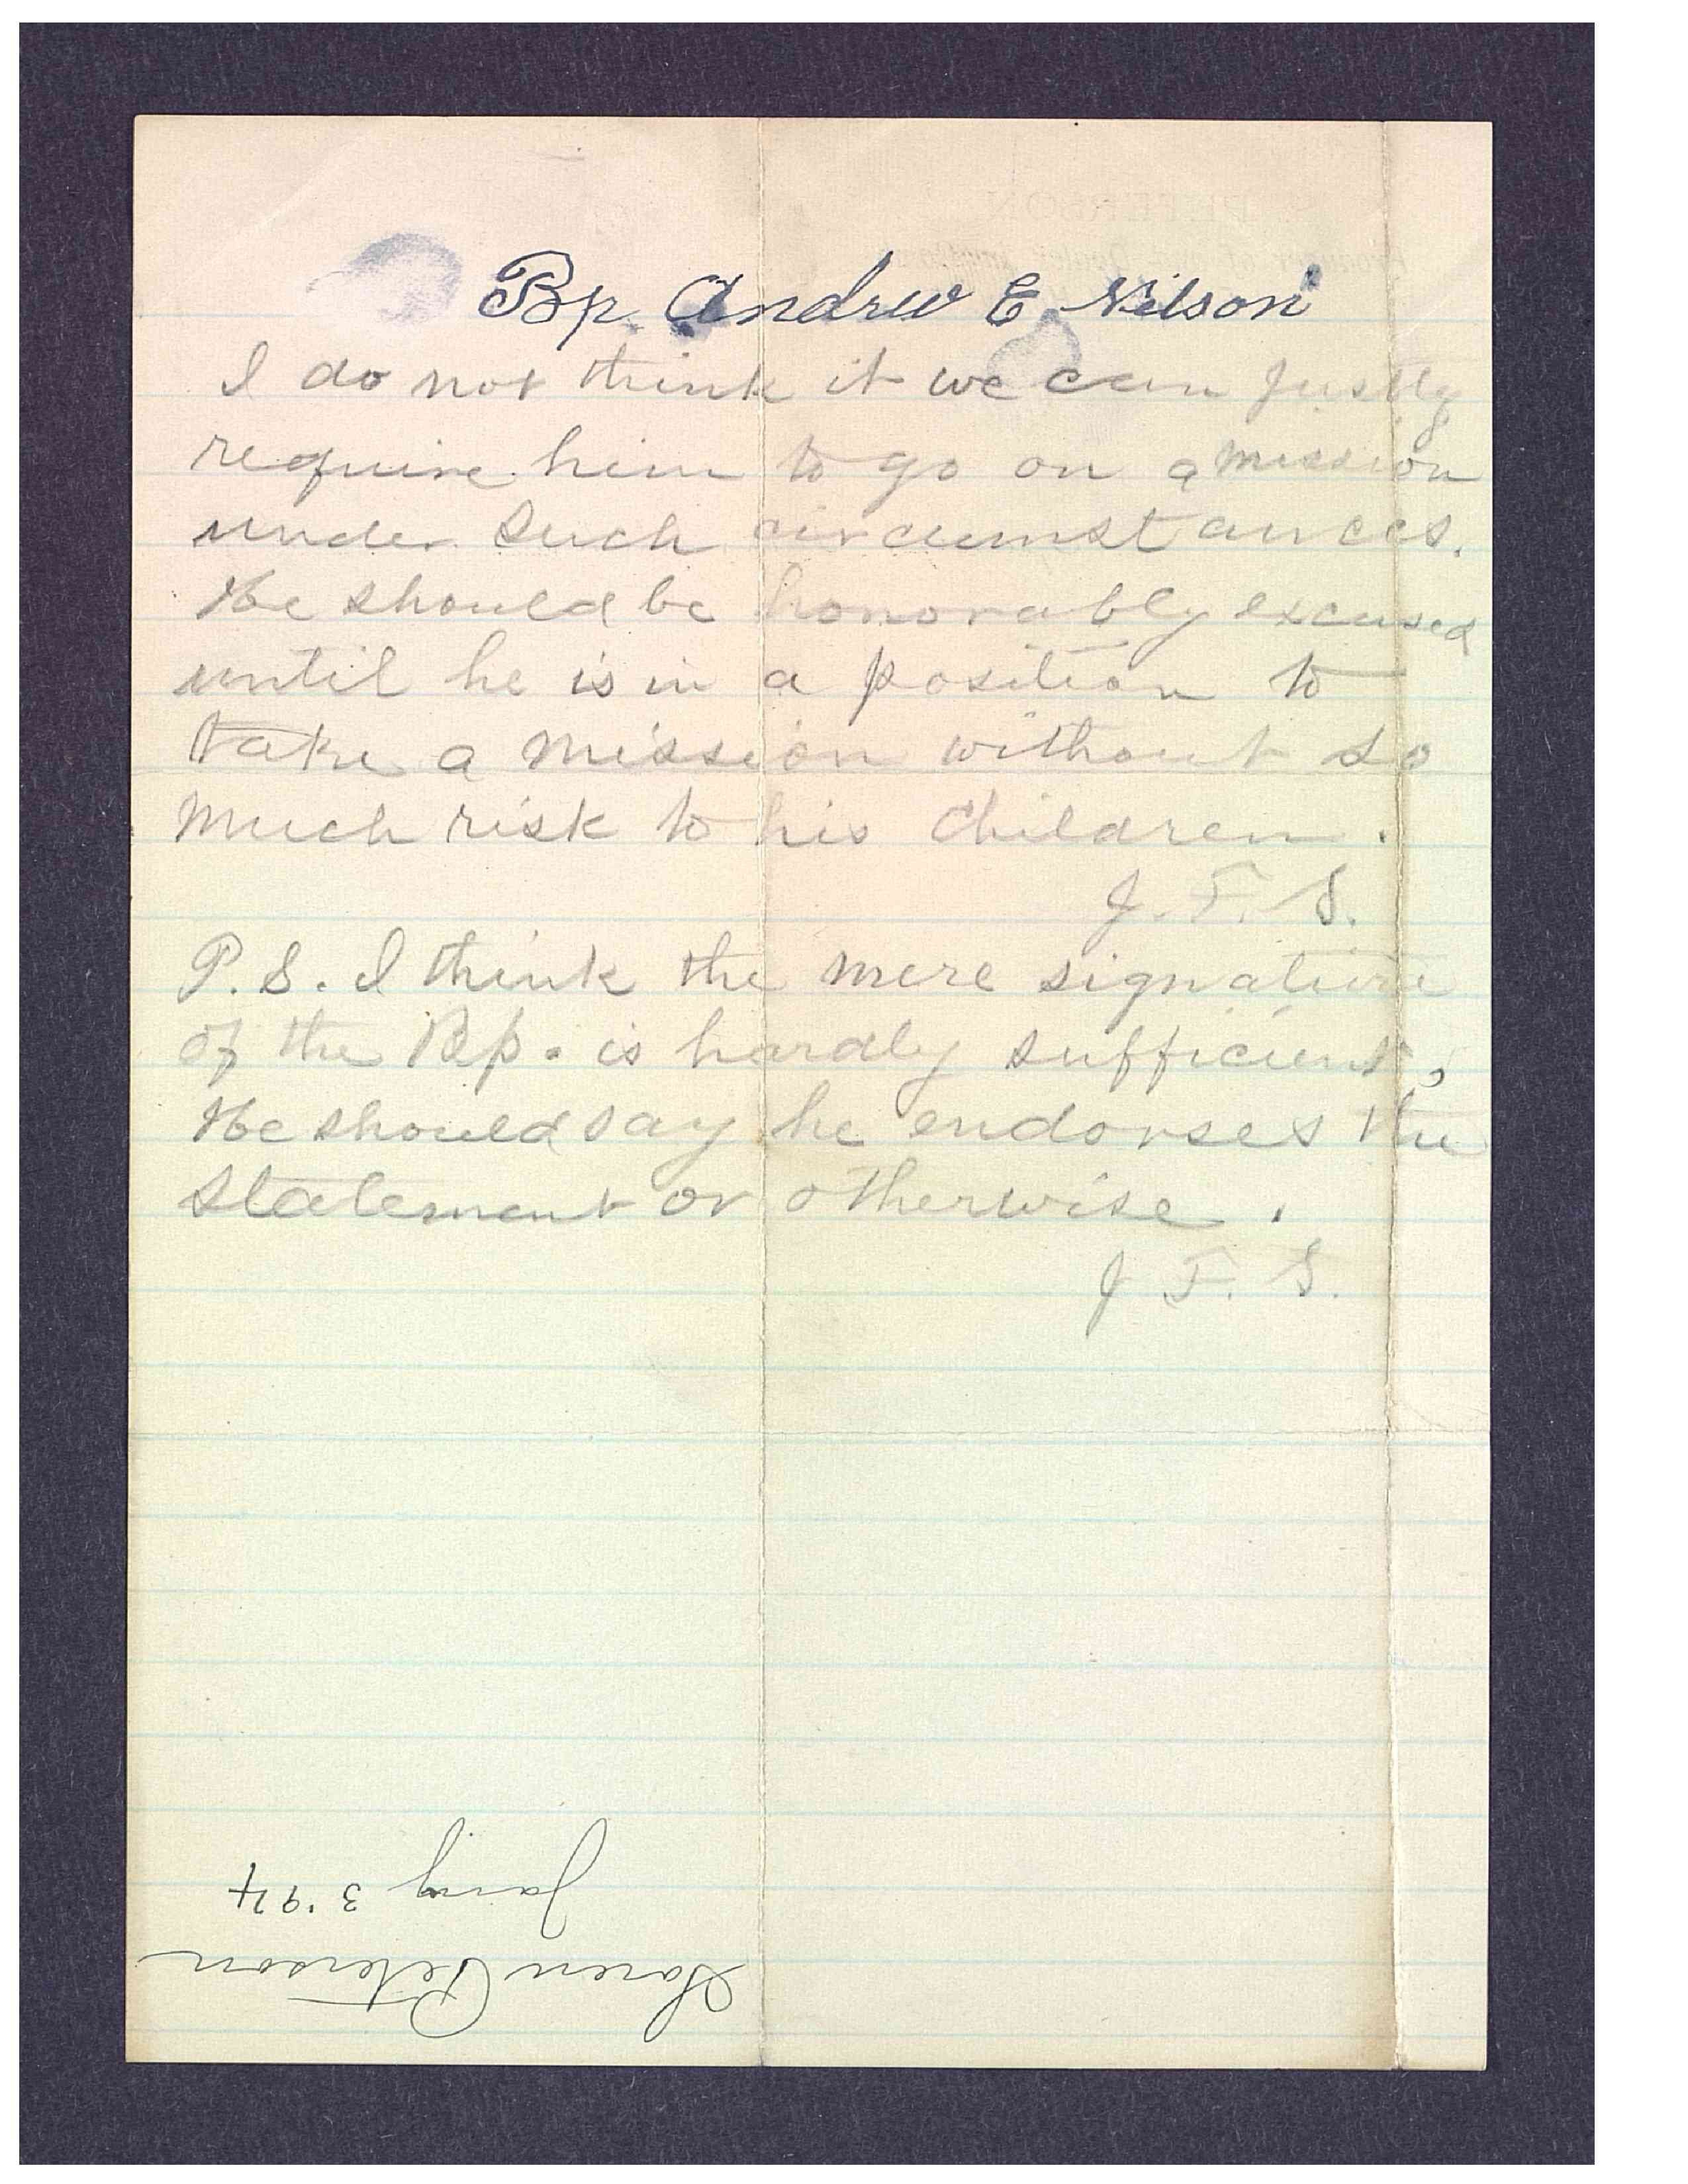 Bp. Andrew E. Nilson
I do not think it we can justly
require him to go on a mission
under such circumstances.
He should be honorably excused
until he is in a position to
take a mission without so
much risk to his children.
J. F. S.
P. S. I think the mere signature
of the Bp. is hardly sufficient,
He should say he endorses the
statement or otherwise.
J. F. S.
Soren Peterson
Jany 3 '94